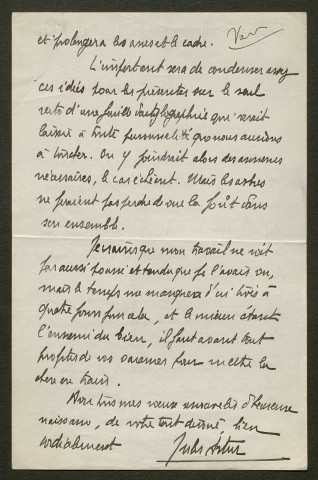 et prolongera les axes et le cadre.
L'important sera de condenser assez
ces idées pour les présenter sur le seul
recto d'une feuille d'autographie qui serait
laissée à toute personnalité que nous aurions
à tracter. On y joindrait alors des annexes
nécessaires, le cas échéant. Mais les arbres
ne peuvent pas perdre de vue la forêt dans
son ensemble.
Je crains que mon travail ne soit
pas aussi poussé et tendu que je l'avais cru,
mais le temps ne manquera d'ici trois à
quatre jours pour cela, et le mieux étant
l'ennemi du bien, il faut avant tout
profiter de vos vacances pour mettre la
chose en train.
Avec tous mes vœux renouvelés d'heureuse
naissance, de votre tout dévoué bien
cordialement